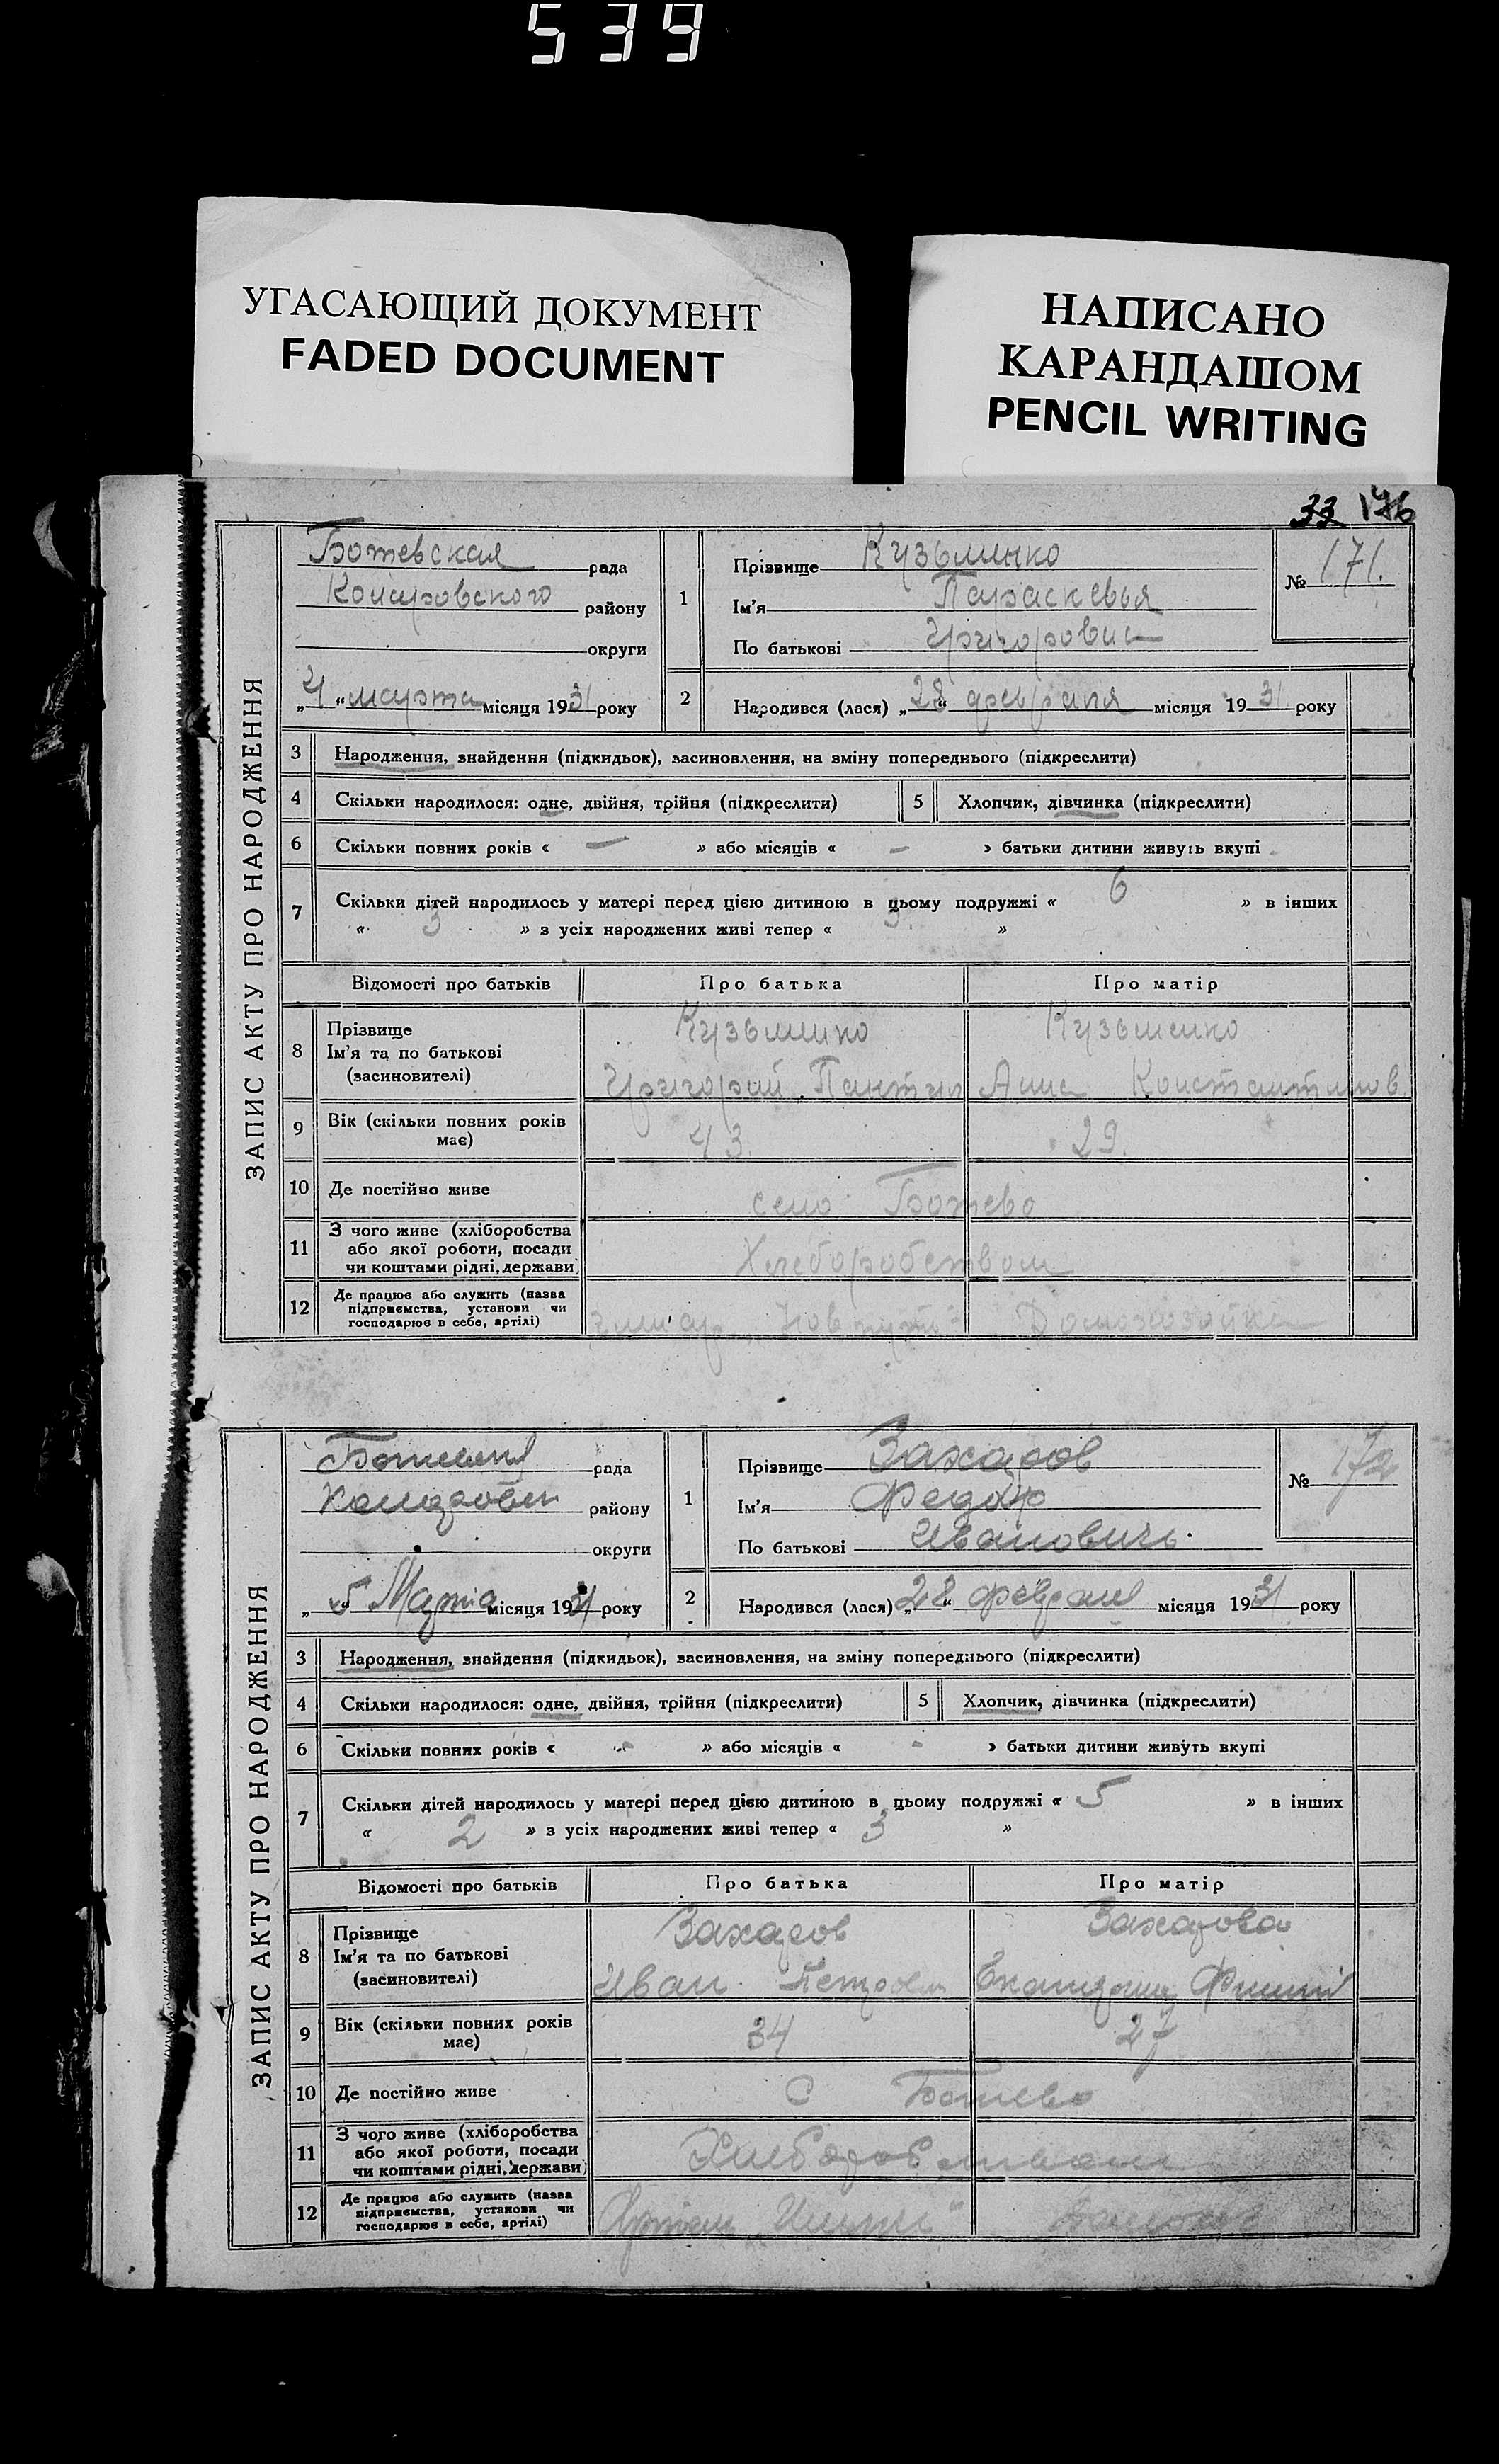 539
УГАСАЮЩИЙ ДОКУМЕНТ
FADED DOCUMENT
НАПИСАНО
КАРАНДАШОМ
PENCIL WRITING
33 176
ЗАПИС АКТУ ПРО НАРОДЖЕННЯ
Ботевская рада
района району
округи
„4“ марта місяця 1931 року
1 Прізвище Кузьминко
Ім'я Параскевья
По батькові Григоровна
№ 171.
2 Народився (лася) „28“ февраля місяця 1931 року
3 Народження, знайдення (підкидьок), засиновлення, на зміну попереднього (підкреслити)
4 Скільки народилося: одне, двійня, трійня (підкреслити) 5 Хлопчик, дівчинка (підкреслити)
6 Скільки повних років « — » або місяців « — » батьки дитини живуть вкупі
7 Скільки дітей народилось у матері перед цією дитиною в цьому подружжі « 6 » в інших
« 3 » з усіх народжених живі тепер « 3. »
Відомості про батьків Про батька Про матір
8 Прізвище Кузьминко Кузьменко
Ім'я та по батькові
(засиновителі) Григорий Пантел Анна Константинов.
9 Вік (скільки повних років має) 43. 29.
10 Де постійно живе село Ботево
11 З чого живе (хліборобства
або якої роботи, посади
чи коштами рідні, держави) Хлеборобством
12 Де працює або служить (назва
підприємства, установи чи
господарює в себе, артілі) Домохозяйка
ЗАПИС АКТУ ПРО НАРОДЖЕННЯ
рада
району
округи
„5 Марта місяця 1931 року
1 Прізвище Захаров
Ім'я Федор
По батькові Ивановичь.
№ 172
2 Народився (лася) „28“ февраля місяця 1931 року
3 Народження, знайдення (підкидьок), засиновлення, на зміну попереднього (підкреслити)
4 Скільки народилося: одне, двійня, трійня (підкреслити) 5 Хлопчик, дівчинка (підкреслити)
6 Скільки повних років « - » або місяців « - » батьки дитини живуть вкупі
7 Скільки дітей народилось у матері перед цією дитиною в цьому подружжі « 5 » в інших
« 2 » з усіх народжених живі тепер « 3 »
Відомості про батьків Про батька Про матір
8 Прізвище Захаров Захарова
Ім'я та по батькові
(засиновителі) Иван Петрович Екатерина
9 Вік (скільки повних років має) 34 27
10 Де постійно живе С Ботево
11 З чого живе (хліборобства
або якої роботи, посади
чи коштами рідні, держави)
12 Де працює або служить (назва
підприємства, установи чи
господарює в себе, артілі)